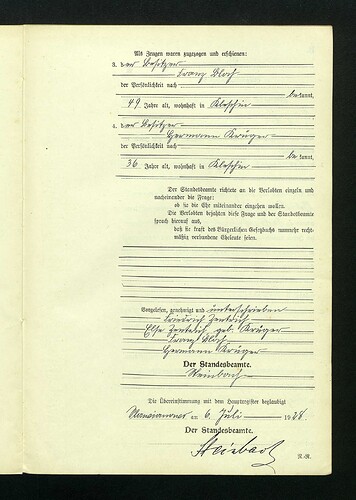 Als Zeugen waren zugezogen und erschienen:
3. der Besitzer
Franz Bloch
der Persönlichkeit nach
bekannt,
49 Jahre alt, wohnhaft in
4. der Besitzer
Hermann Krüger
der Persönlichkeit nach
bekannt,
36 Jahre alt, wohnhaft in
Der Standesbeamte richtete an die Verlobten einzeln und
nacheinander die Frage:
ob sie die Ehe miteinander eingehen wollen.
Die Verlobten bejahten diese Frage und der Standesbeamte
sprach hierauf aus,
daß sie kraft des Bürgerlichen Gesetzbuchs nunmehr recht-
mäßig verbundene Eheleute seien.
Vorgelesen, genehmigt und unterschrieben
Friedrich
Else geb. Krüger
Franz Bloch
Hermann Krüger
Der Standesbeamte.
Steinbach
Die Übereinstimmung mit dem Hauptregister beglaubigt
am 6. Juli 1928.
Der Standesbeamte.
Steinbach